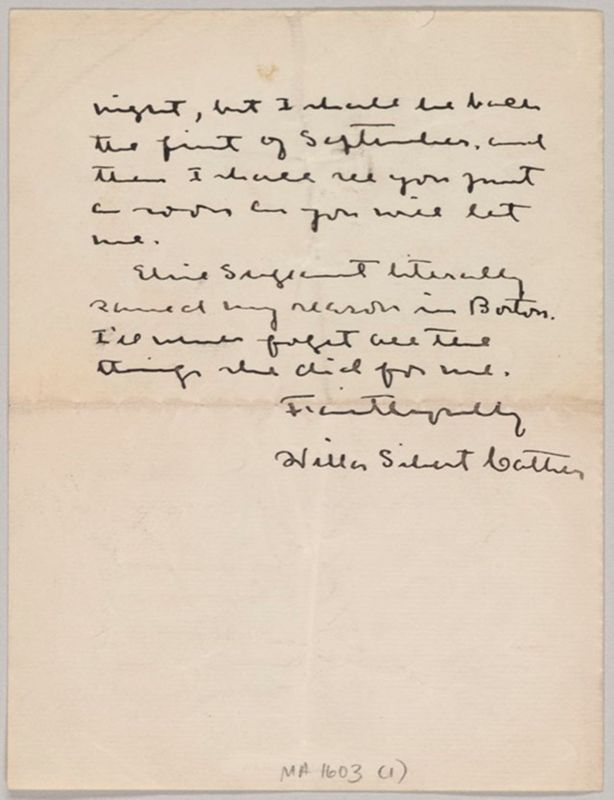 night, but I shall be back
the first of September, and
then I shall see you just
as soon as you will let
me.
Elsie Sergeant literally
saved my reason in Boston.
I'll never forget all the
things she did for me.
Faithfully
Willa Sibert Cather
MA 1603 (1)